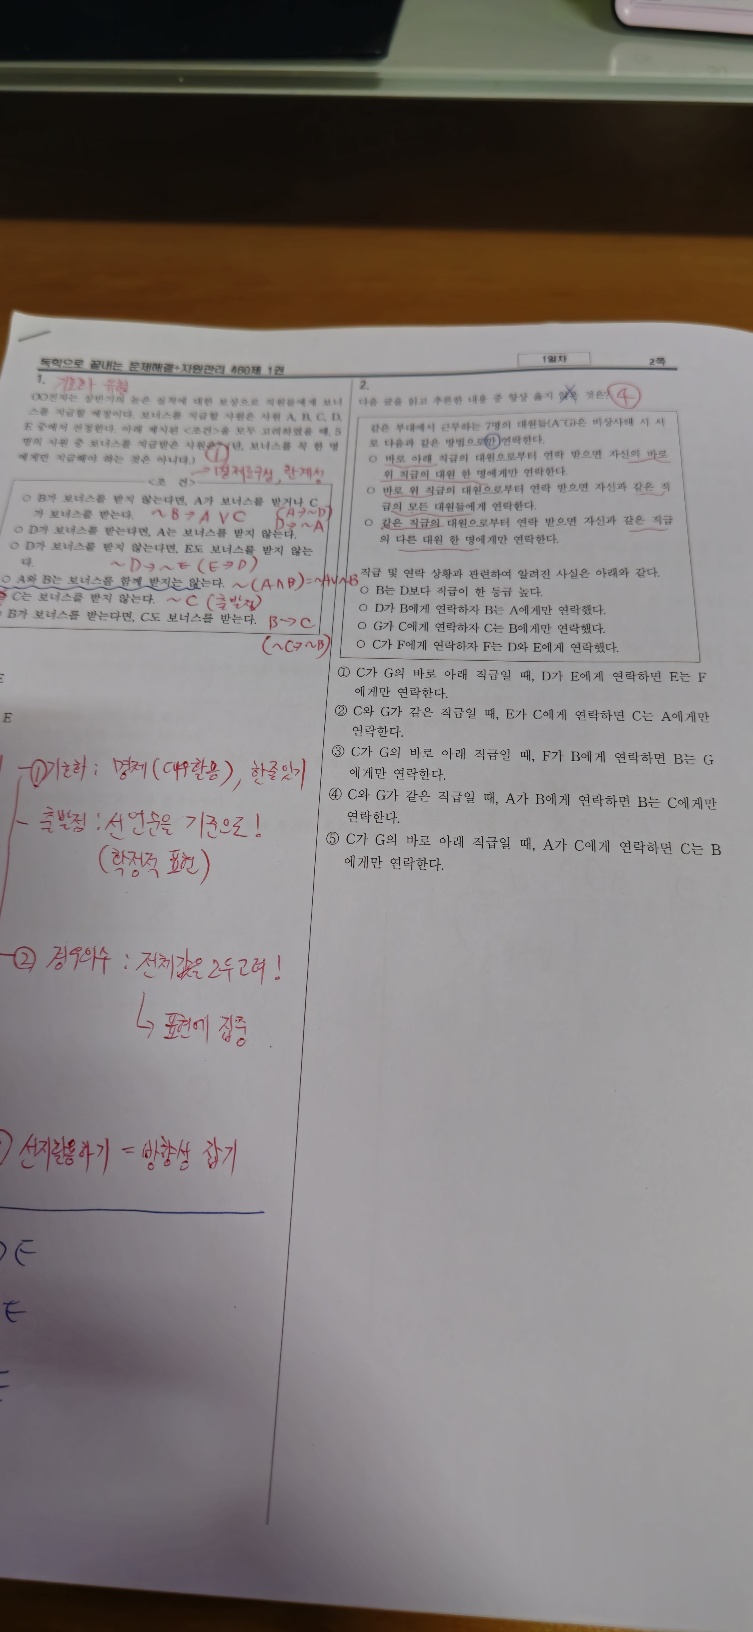 독학으로 끝내는 문제해결·자원관리 460제 1권
1일차
2쪽
1. 기호화 유형
OO전자는 상반기의 높은 실적에 대한 보상으로 직원들에게 보너
스를 지급할 예정이다. 보너스를 지급할 사원은 사원 A, B, C, D,
E 중에서 선정한다. 아래 제시된 <조건>을 모두 고려하였을 때, 5
명의 사원 중 보너스를 지급받은 사원은? (단, 보너스를 꼭 한 명
에게만 지급해야 하는 것은 아니다.)
①
→ 명제로구성, 관계성
<조 건>
○ B가 보너스를 받지 않는다면, A가 보너스를 받거나 C
가 보너스를 받는다. ~B→A∨C (A→~D)
○ D가 보너스를 받는다면, A는 보너스를 받지 않는다. D→~A
○ D가 보너스를 받지 않는다면, E도 보너스를 받지 않는
다. ~D→~E (E→D)
○ A와 B는 보너스를 함께 받지는 않는다. ~(A∧B)=~A∨~B
C는 보너스를 받지 않는다. ~C (출발점)
○ B가 보너스를 받는다면, C도 보너스를 받는다. B→C
(~C→~B)
E
E
①기호화 : 명제(대우활용), 한줄잇기
- 출발점 : 선언순을 기준으로!
(확정적 표현)
② 경우의수 : 전체값을 모두고려!
↳ 표현에 집중
선지활용하기 = 방향성 잡기
E
E
2.
다음 글을 읽고 추론한 내용 중 항상 옳지 않은 것은? ④
같은 부대에서 근무하는 7명의 대원들(A~G)은 비상사태 시 서
로 다음과 같은 방법으로만 연락한다.
○ 바로 아래 직급의 대원으로부터 연락 받으면 자신의 바로
위 직급의 대원 한 명에게만 연락한다.
○ 바로 위 직급의 대원으로부터 연락 받으면 자신과 같은 직
급의 모든 대원들에게 연락한다.
○ 같은 직급의 대원으로부터 연락 받으면 자신과 같은 직급
의 다른 대원 한 명에게만 연락한다.
직급 및 연락 상황과 관련하여 알려진 사실은 아래와 같다.
○ B는 D보다 직급이 한 등급 높다.
○ D가 B에게 연락하자 B는 A에게만 연락했다.
○ G가 C에게 연락하자 C는 B에게만 연락했다.
○ C가 F에게 연락하자 F는 D와 E에게 연락했다.
① C가 G의 바로 아래 직급일 때, D가 E에게 연락하면 E는 F
에게만 연락한다.
② C와 G가 같은 직급일 때, E가 C에게 연락하면 C는 A에게만
연락한다.
③ C가 G의 바로 아래 직급일 때, F가 B에게 연락하면 B는 G
에게만 연락한다.
④ C와 G가 같은 직급일 때, A가 B에게 연락하면 B는 C에게만
연락한다.
⑤ C가 G의 바로 아래 직급일 때, A가 C에게 연락하면 C는 B
에게만 연락한다.